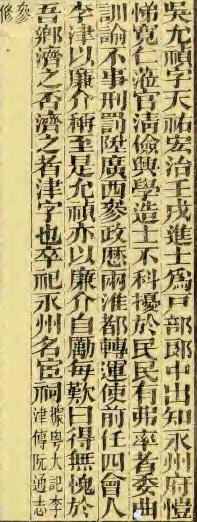 吳允禎字天祐宏治壬戌進士爲戸部郎中出知永州府愷
悌寬仁涖官清儉興學造士不科擾於民民有弗率者委曲
訓諭不事刑罰陞廣西參政歷兩淮都轉運使前任四會人
李津以廉介稱至是允禎亦以廉介自勵每歎曰得無愧於
吾鄉濟之否濟之者津字也卒祀永州名臣祠據粤大記李
津傳阮通志
參
修